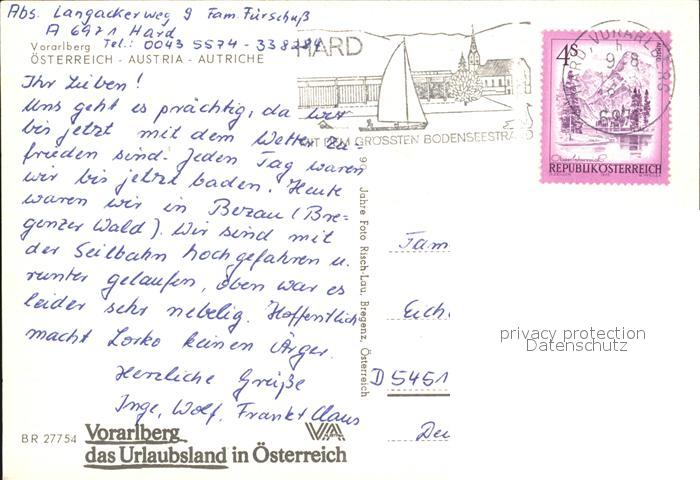 Abs. Langackerweg 9 Fam. Fürschuß
A 6971 Hard
Vorarlberg Tel.: 0043 5574 -
ÖSTERREICH - AUSTRIA - AUTRICHE
HARD
MIT DEM GRÖSSTEN BODENSEESTRAND
HARD, VORARLBERG
4 S
REPUBLIK ÖSTERREICH
Ihr Lieben!
Uns geht es prächtig, da wir
bis jetzt mit dem Wetter zu-
frieden sind. Jeden Tag waren
wir bis jetzt baden. Heute
waren wir in Bezau (Bre-
genzer Wald). Wir sind mit
der Seilbahn hochgefahren u.
runter gelaufen, oben war es
leider sehr nebelig. Hoffentlich
macht Lorko keinen Ärger.
Herzliche Grüße
Inge, Wolf, Frank + Claus
Jahre Foto Risch-Lau, Bregenz, Österreich
Fam
Eich
D 5451
Deu
privacy protection
Datenschutz
BR 27754
Vorarlberg
das Urlaubsland in Österreich